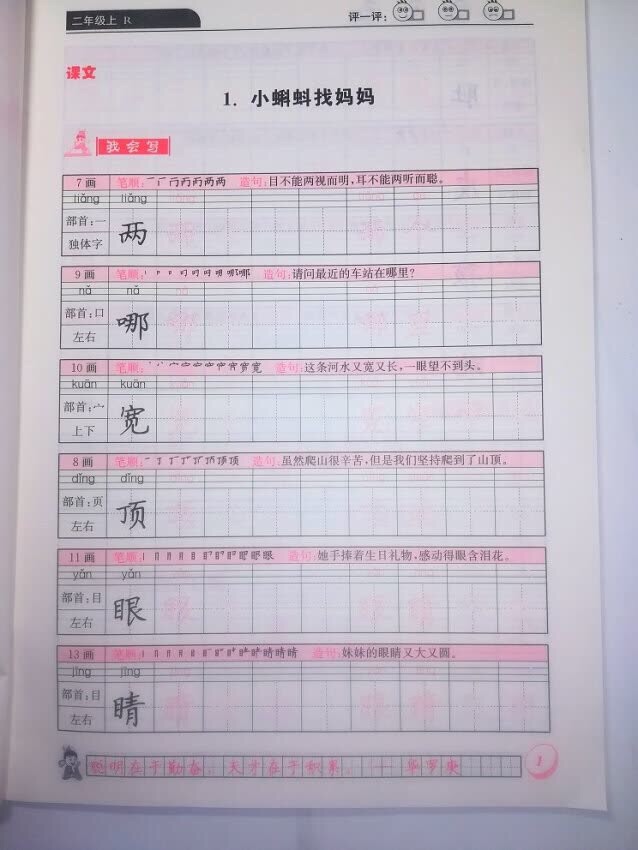 二年级上 R
评一评:
课文
1. 小蝌蚪找妈妈
我会写
7 画 笔顺: 造句:目不能两视而明,耳不能两听而聪。
liǎng liǎng
部首:一 两
独体字
9 画 笔顺: 造句:请问最近的车站在哪里?
nǎ nǎ
部首:口 哪
左右
10 画 笔顺: 造句:这条河水又宽又长,一眼望不到头。
kuān kuān
部首:宀 宽
上下
8 画 笔顺: 造句:虽然爬山很辛苦,但是我们坚持爬到了山顶。
dǐng dǐng
部首:页 顶
左右
11 画 笔顺: 造句:她手捧着生日礼物,感动得眼含泪花。
yǎn yǎn
部首:目 眼
左右
13 画 笔顺: 造句:妹妹的眼睛又大又圆。
jīng jīng
部首:目 睛
左右
聪明在于勤奋,天才在于积累。——华罗庚
1